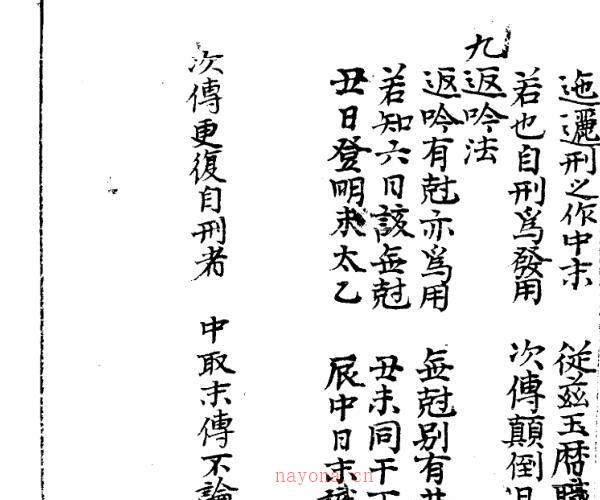 迤邐刑之作中末 從茲玉曆
若也自刑爲發用 次傳顛倒
九返吟法
返吟有尅亦爲用 無尅別有
若知六日該無尅 丑未同干
丑日登明未太乙 辰中日末
次傳更復自刑者 中取末傳不論
nayona.cn